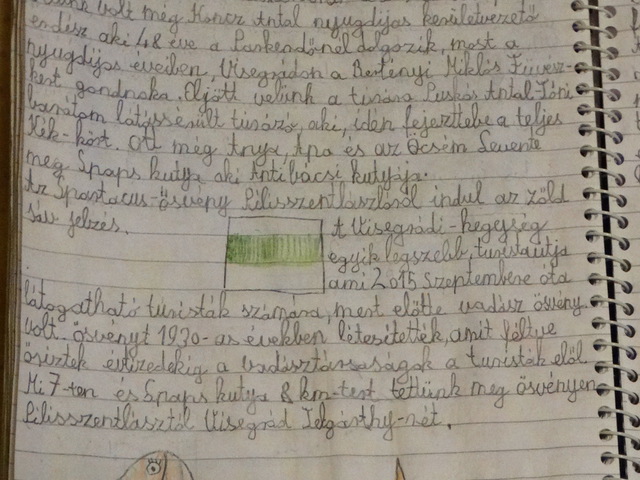 volt még Koncz Antal nyugdíjas kerületvezető
erdész aki 48 éve a Parkerdőnél dolgozik, most a
nyugdíjas éveiben, Visegrádon a Bertényi Miklós Füvész-
kert gondnoka. Eljött velünk a túrára Puskás Antal-Tóni
barátom látássérült túrázó, aki, iden fejeztebe a teljes
Kék-kört. Ott még Anya, Apa és az Öcsém Levente
meg Snaps kutya aki Antibácsi kutyája.
Az Spartacus-ösvény Pilisszentlászlóról indul az zöld
sáv jelzés.
A Visegrádi-hegység
egyik legszebb, turistaútja
ami 2015 Szeptembere óta
látogatható turisták számára, mert előtte vadász ösvény
volt. ösvényt 1930-as években létesítették, amit féltve
őriztek évtizedekig a vadásztársaságok a turisták elől.
Mi 7-ten és Snaps kutya 8 km-tert tettünk meg ösvényen
Pilisszentlásztól Visegrád